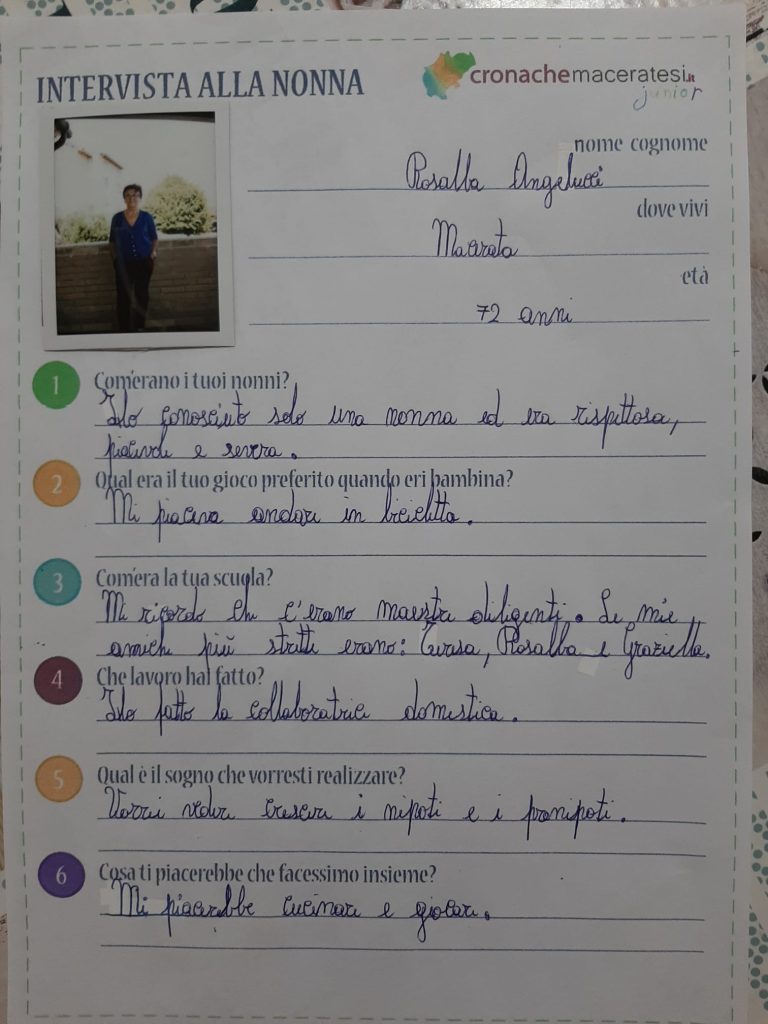 INTERVISTA ALLA NONNA
cronachemaceratesi.it
junior
nome cognome
Rosalba Angelucci
dove vivi
Macerata
età
72 anni
1 Com'erano i tuoi nonni?
Ho conosciuto solo una nonna ed era rispettosa,
piacevole e severa.
2 Qual era il tuo gioco preferito quando eri bambina?
Mi piaceva andare in bicicletta.
3 Com'era la tua scuola?
Mi ricordo che c'erano maestre diligenti. Le mie
amiche più strette erano: Teresa, Rosalba e Graziella.
4 Che lavoro hai fatto?
Ho fatto la collaboratrice domestica.
5 Qual è il sogno che vorresti realizzare?
Vorrei vedere crescere i nipoti e i pronipoti.
6 Cosa ti piacerebbe che facessimo insieme?
Mi piacerebbe cucinare e giocare.